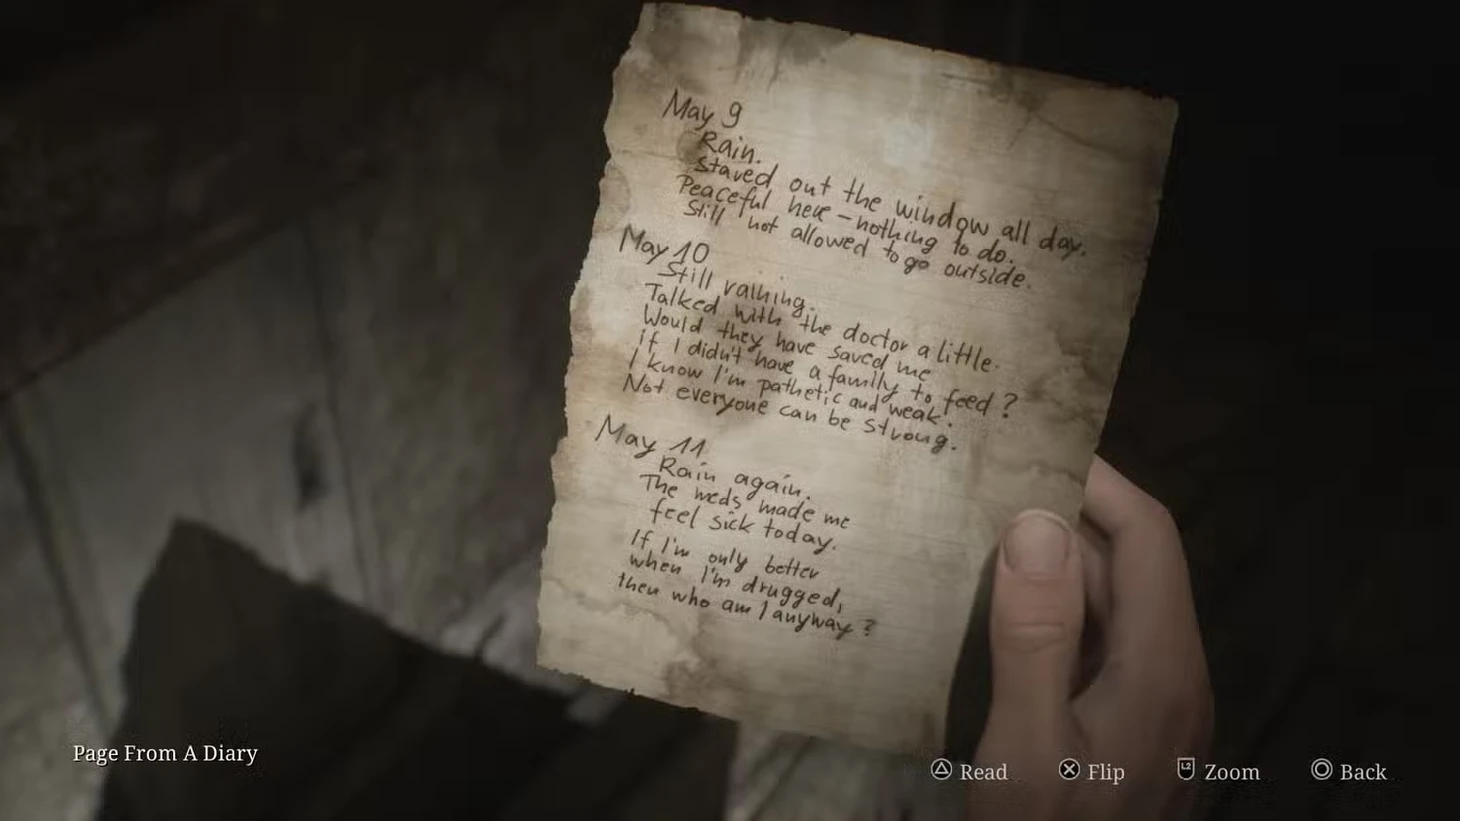 May 9
Rain.
Stared out the window all day.
Peaceful here - nothing to do.
Still not allowed to go outside.
May 10
Still raining.
Talked with the doctor a little.
Would they have saved me
if I didn't have a family to feed?
I know I'm pathetic and weak.
Not everyone can be strong.
May 11
Rain again.
The meds made me
feel sick today.
If I'm only better
when I'm drugged,
then who am I anyway?
Page From A Diary
Read
Flip
L2 Zoom
Back